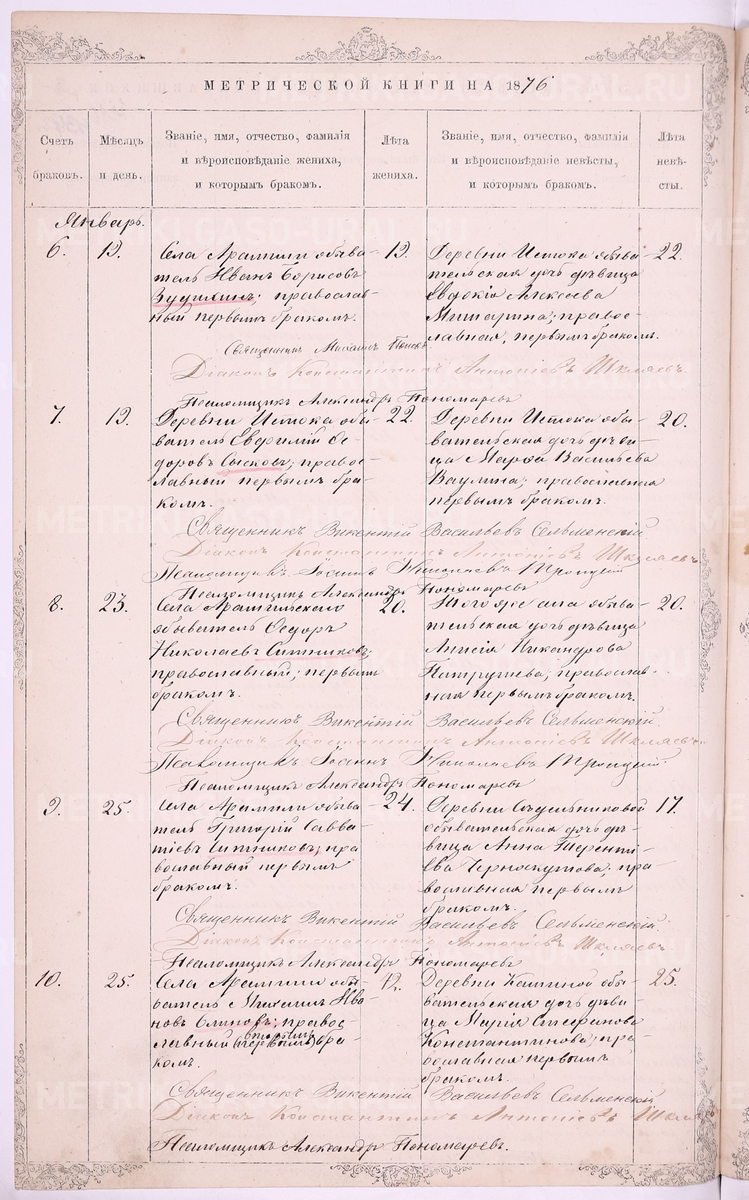 МЕТРИЧЕСКОЙ КНИГИ НА 1876
Счетъ браковъ.
Мѣсяцъ и день.
Званіе, имя, отчество, фамилія
и вѣроисповѣданіе жениха,
и которымъ бракомъ.
Лѣта жениха.
Званіе, имя, отчество, фамилія
и вѣроисповѣданіе невѣсты,
и которымъ бракомъ.
Лѣта невѣ-
сты.
Январь.
6.
Села Арамили обыва-
тель Иванъ Борисовъ
православ-
ный первымъ бракомъ.
Деревни Истока обыва-
тельская дочь дѣвица
Евдокія Алексѣева
Мишарина; право-
лавная, первымъ бракомъ.
22.
Священникъ Михаилъ Поповъ
Діаконъ Константинъ Антоніевъ Шкляевъ
Псаломщикъ Александръ Пономаревъ
7.
Деревни Истока обы-
ватель Евфимій Ѳе-
доровъ Сысковъ; право-
славный первымъ бра-
комъ.
22.
Деревни Истока обы-
вательская дочь дѣви-
ца Марѳа Васильева
Ваулина; православная
первымъ бракомъ.
20.
Священникъ Викентій Васильевъ Сельменскій
Діаконъ Константинъ Антоніевъ Шкляевъ
Псаломщикъ Іосифъ Николаевъ Троицкій
Псаломщикъ Александръ Пономаревъ
8.
23.
Села Арамильскаго
обыватель Ѳедоръ
Николаевъ Ситниковъ;
православный; первымъ
бракомъ.
20.
Того же села обыва-
тельская дочь дѣвица
Анисія Никандрова
Патрушева; православ-
ная первымъ бракомъ.
20.
Священникъ Викентій Васильевъ Сельменскій
Діаконъ Константинъ Антоніевъ Шкляевъ
Псаломщикъ Іосифъ Николаевъ Троицкій
Псаломщикъ Александръ Пономаревъ
9.
25.
Села Арамили обыва-
тель Григорій Савва-
тіевъ Ситниковъ; пра-
вославный первымъ
бракомъ.
24.
Деревни Сѣдельниковой
обывательская дочь дѣ-
вица Анна Теренті-
ева Черноскутова; пра-
вославная первымъ
бракомъ.
17.
Священникъ Викентій Васильевъ Сельменскій
Діаконъ Константинъ Антоніевъ Шкляевъ
Псаломщикъ Александръ Пономаревъ
10.
25.
Села Арамили обы-
ватель Михаилъ Ива-
новъ правос-
лавный (первымъ) вторымъ бра-
комъ.
42.
Деревни Кашиной обы-
вательская дочь дѣви-
ца Марія Стефанова
Константинова; пра-
вославная первымъ
бракомъ.
25.
Священникъ Викентій Васильевъ Сельменскій
Діаконъ Константинъ Антоніевъ Шкляевъ
Псаломщикъ Александръ Пономаревъ.